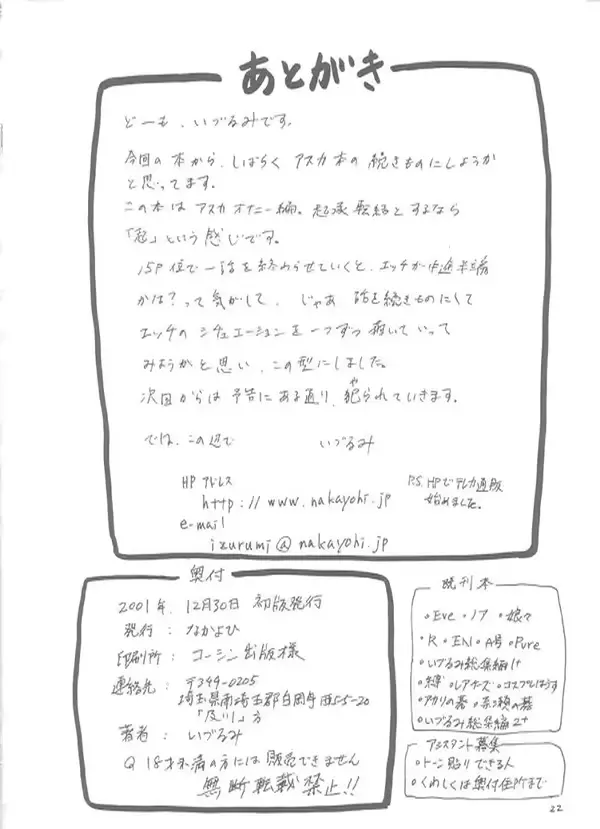 あとがき
どーも、いづるみです。
今回の本から、しばらくアスカ本の続きものにしようか
と思ってます。
この本はアスカオナニー編。起承転結とするなら
「起」という感じです。
15P位で一話を終わらせていくと、エッチが中途半端
かは?って気がして、じゃあ話を続きものにして
エッチのシチュエーションを一つずつ描いていって
みようかと思い、この型にしました。
次回からは予告にある通り、犯られていきます。
や
では、この辺で いづるみ
HPアドレス
http://www.nakayohi.jp
e-mail
izurumi@nakayohi.jp
P.S. HPでテレカ通販
始めました。
奥付
2001年、12月30日 初版発行
発行：なかよひ
印刷所：コーシン出版様
連絡先：〒349-0205
埼玉県南埼玉郡白岡町西5-5-20
「及川」方
著者：いづるみ
18才未満の方には販売できません
無断転載禁止!!
既刊本
◦Eve ◦ノア ◦娘々
◦R ◦EN ◦A号 ◦Pure
◦いづるみ総集編1+
◦縛 ◦レアナーズ ◦コスプレはうす
◦アカリの巻
◦いづるみ総集編2+
アシスタント募集
◦トーン貼りできる人
◦くわしくは奥付住所まで
22